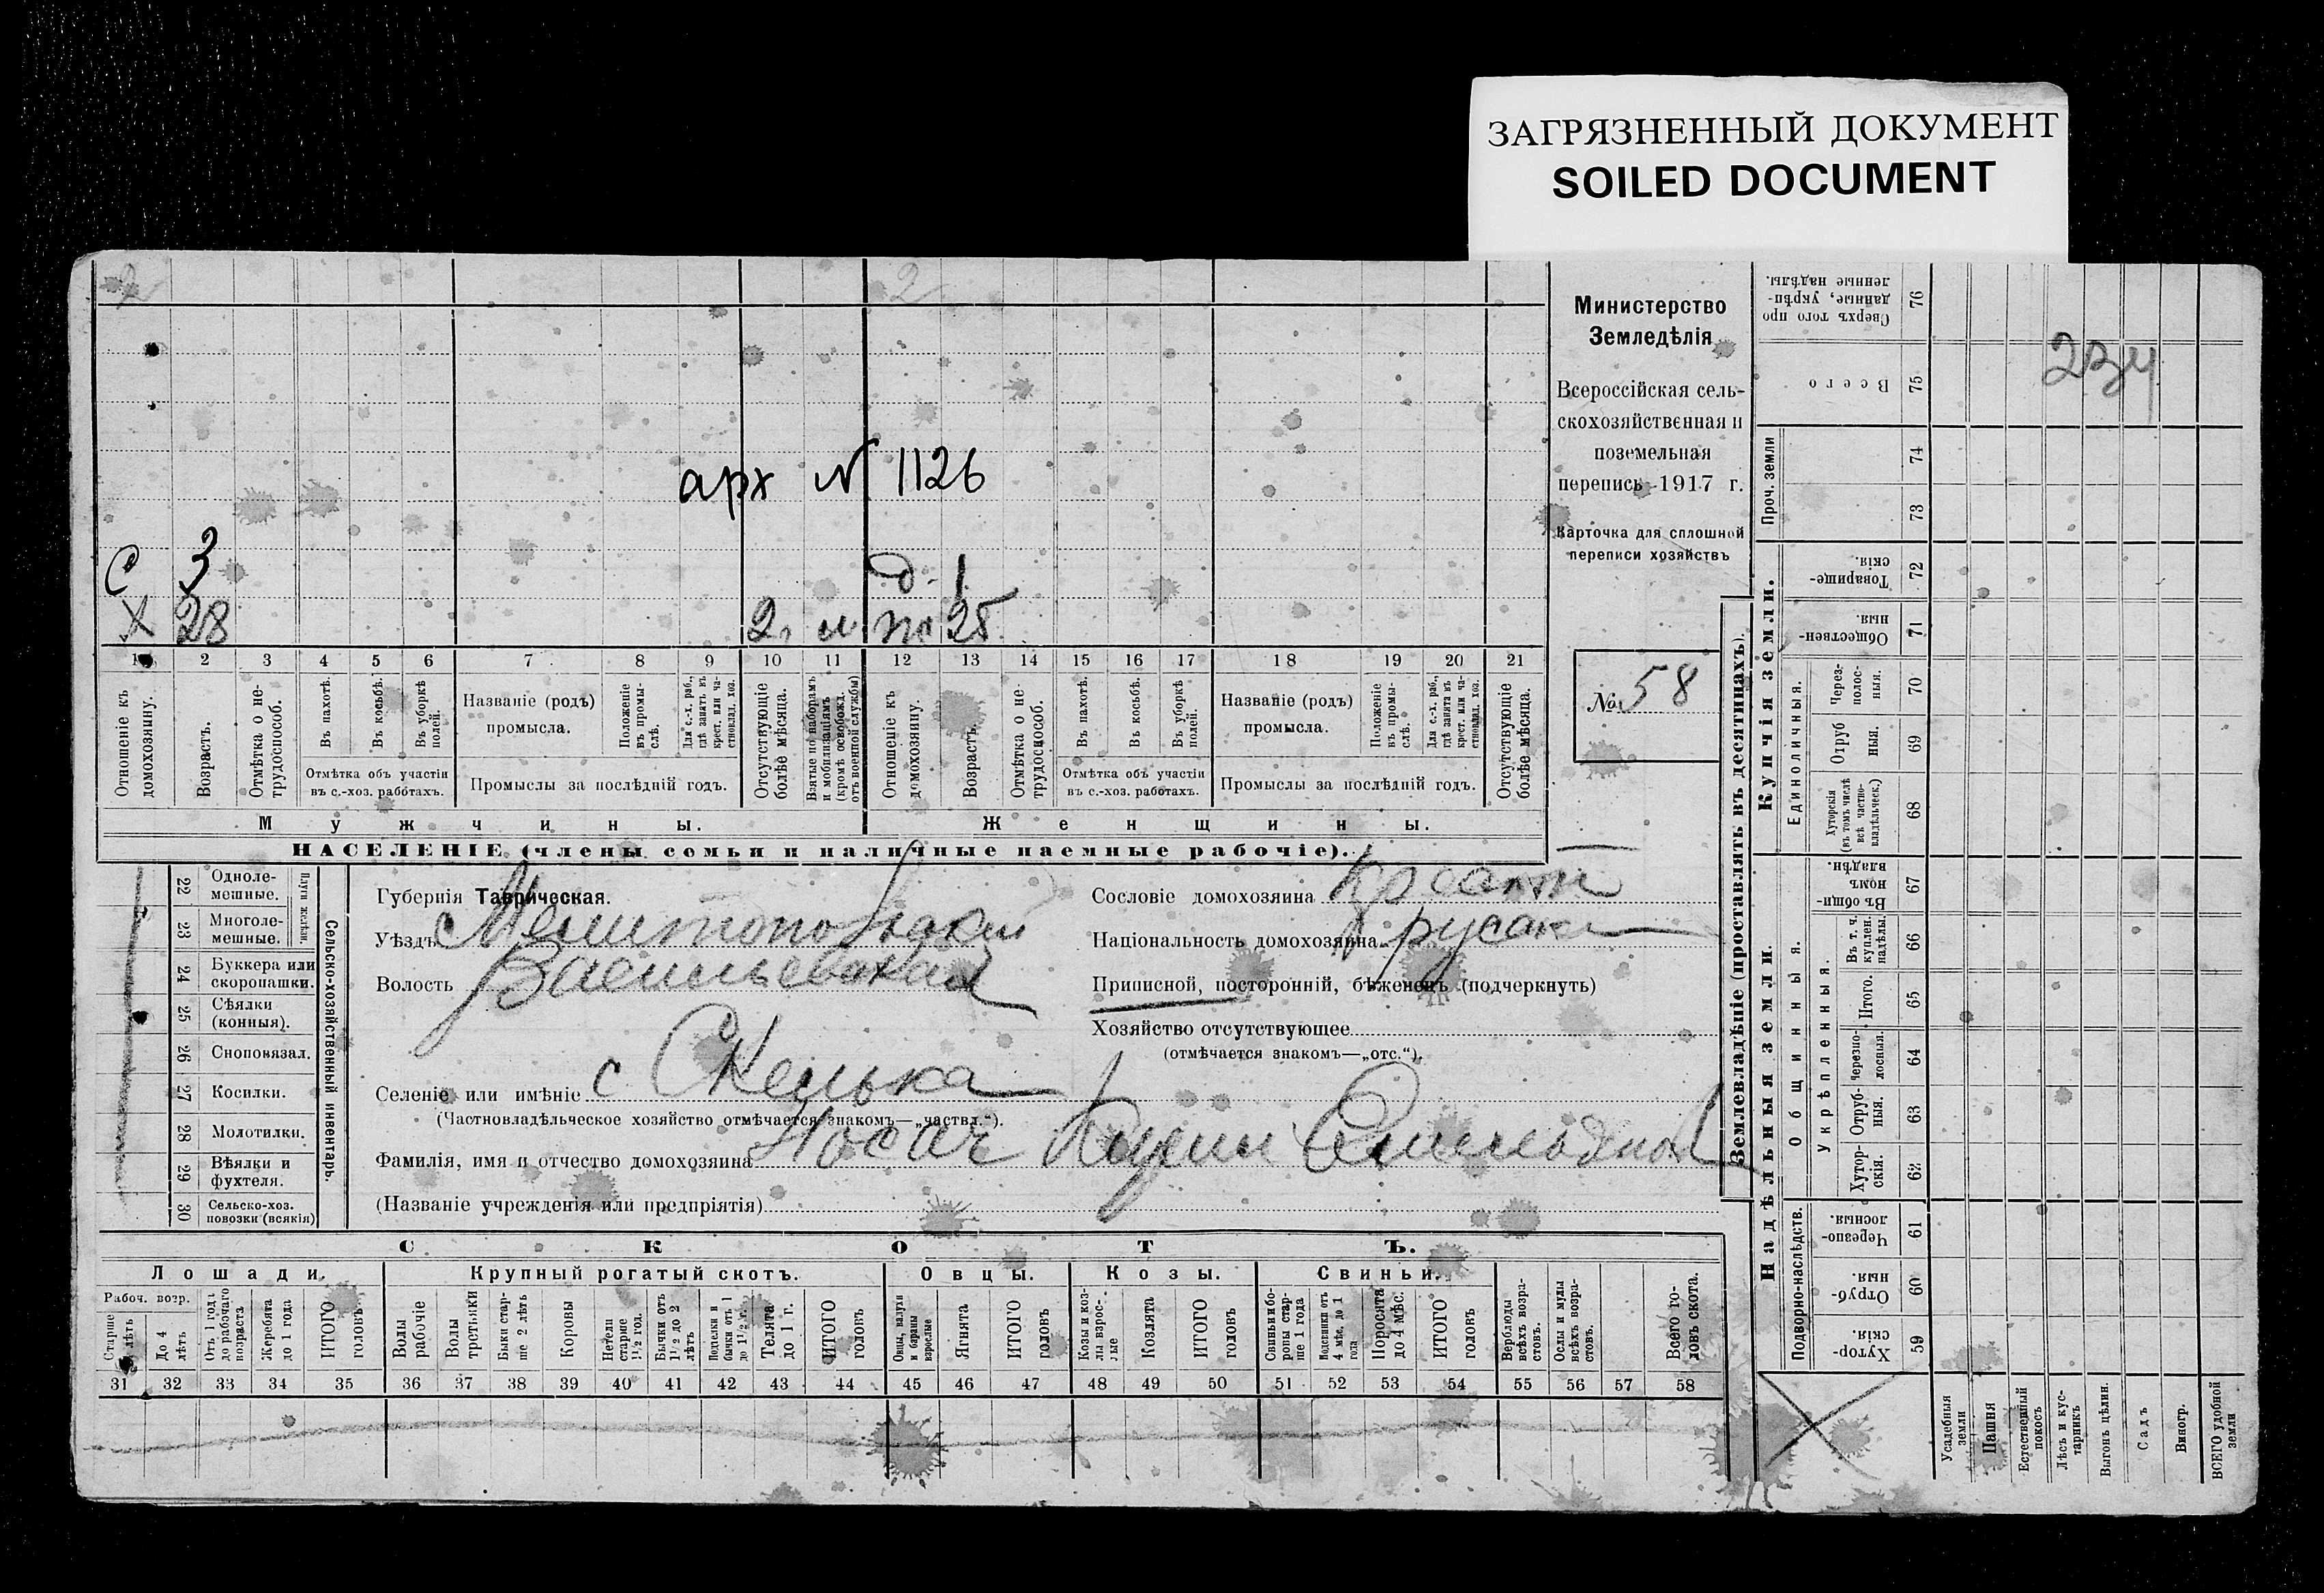 ЗАГРЯЗНЕННЫЙ ДОКУМЕНТ
SOILED DOCUMENT
2 2
арх N 1126
С 3 д. 1
Х 28 2. 25
1 2 3 4 5 6 7 8 9 10 11 12 13 14 15 16 17 18 19 20 21
Отношеніе къ домохозяину.
Возрастъ.
Отмѣтка о не-трудоспособ.
Въ пахотѣ.
Въ косьбѣ.
Въ уборкѣ полей.
Отмѣтка объ участіи въ с.-хоз. работахъ.
Названіе (родъ) промысла.
Положеніе въ промы-слѣ.
Для с.-х. раб., гдѣ занятъ въ крест. или ча-стновлад. хоз.
Промыслы за послѣдній годъ.
Отсутствующіе болѣе мѣсяца.
Взятые по наборамъ и мобилизаціямъ (кромѣ освобожд. отъ военной службы)
Отношеніе къ домохозяину.
Возрастъ.
Отмѣтка о не-трудоспособ.
Въ пахотѣ.
Въ косьбѣ.
Въ уборкѣ полей.
Отмѣтка объ участіи въ с.-хоз. работахъ.
Названіе (родъ) промысла.
Положеніе въ промы-слѣ.
Для с.-х. раб., гдѣ занята въ крест. или ча-стновлад. хоз.
Промыслы за послѣдній годъ.
Отсутствующіе болѣе мѣсяца.
Мужчины. Женщины.
НАСЕЛЕНІЕ (члены семьи и наличные наемные рабочіе).
Министерство
Земледѣлія
Всероссійская сель-
скохозяйственная и
поземельная
перепись 1917 г.
Карточка для сплошной
переписи хозяйствъ
№ 58
22 Одноле-мешные.
23 Многоле-мешные.
Плуги желѣзн.
24 Буккера или скоропашки.
25 Сѣялки (конныя).
26 Сноповязал.
27 Косилки.
28 Молотилки.
29 Вѣялки и фухтеля.
30 Сельско-хоз. повозки (всякія)
Сельско-хозяйственный инвентарь.
Губернія Таврическая.
Уѣздъ Мелитопольскій
Волость Васильевская
Селеніе или имѣніе с Скелька
(Частновладѣльческое хозяйство отмѣчается знакомъ—„частвл.“).
Фамилія, имя и отчество домохозяина Носач
(Названіе учрежденія или предпріятія)
Сословіе домохозяина
Національность домохозяина
Приписной, посторонній, бѣженецъ (подчеркнуть)
Хозяйство отсутствующее
(отмѣчается знакомъ—„отс.“).
СКОТЪ.
Лошади. Крупный рогатый скотъ. Овцы. Козы. Свиньи.
Рабоч. возр.
Старше лѣтъ
До 4 лѣтъ
Отъ 1 года до рабочаго возраста
Жеребята до 1 года
ИТОГО головъ
Волы рабочіе
Волы третьяки
Быки стар-ше 2 лѣтъ
Коровы
Нетели старше 1½ год.
Бычки отъ 1½ до 2 лѣтъ
Подтелки и бычки отъ 1 до 1½ г.
Телята до 1 г.
ИТОГО головъ
Овцы, валухи и бараны взрослые
Ягнята
ИТОГО головъ
Козы и коз-лы взрос-лые
Козлята
ИТОГО головъ
Свиньи и бо-ровы стар-ше 1 года
Подсвинки отъ 4 мѣс. до 1 года
Поросята до 4 мѣс.
ИТОГО головъ
Верблюды всѣхъ возра-стовъ.
Ослы и мулы всѣхъ возра-стовъ.
Всего го-ловъ скота.
31 32 33 34 35 36 37 38 39 40 41 42 43 44 45 46 47 48 49 50 51 52 53 54 55 56 57 58
Землевладѣніе (проставлять въ десятинахъ).
Надѣльныя земли. Купчія земли.
Подворно-наслѣдств.
Общинныя.
Укрѣпленныя.
Единоличныя.
Проч. земли
76 Сверхъ того про-данные, укрѣп-ленные надѣлы.
75 Всего
74
73
72 Товарище-скія.
71 Обществен-ныя.
70 Через-полос-ныя.
69 Отруб-ныя.
68 Хуторскія (въ томъ числѣ всѣ частно-владѣльческ.)
67 Въ общи-номъ владѣн.
66 Въ т. ч. куплен. надѣлы.
65 Итого.
64 Черезпо-лосныя.
63 Отруб-ныя.
62 Хутор-скія.
61 Черезпо-лосныя.
60 Отруб-ныя.
59 Хутор-скія.
Усадебныя земли
Пашня
Естественный покосъ
Лѣсъ и кус-тарникъ
Выгонъ цѣлин.
Садъ
Виногр.
ВСЕГО удобной земли